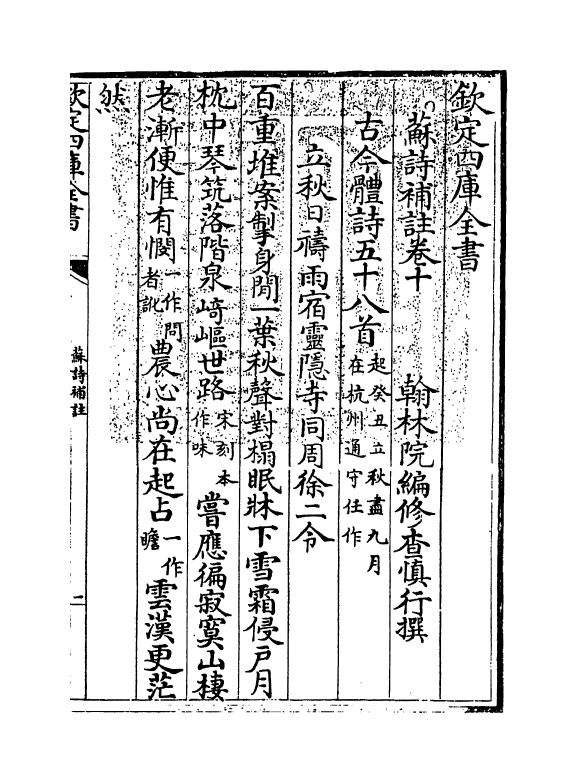 欽定四庫全書
蘇詩補註卷十
翰林院編修查慎行撰
古今體詩五十八首起癸丑立秋盡九月在杭州通守任作
立秋日禱雨宿靈隱寺同周徐二令
百重堆案掣身閒一葉秋聲對榻眠牀下雪霜侵戸月
枕中琴筑落階泉﨑嶇世路宋刻本作味嘗應徧寂寞山棲
老漸便惟有憫一作問者訛農心尚在起占一作瞻雲漢更茫
然
欽定四庫全書
蘇詩補註